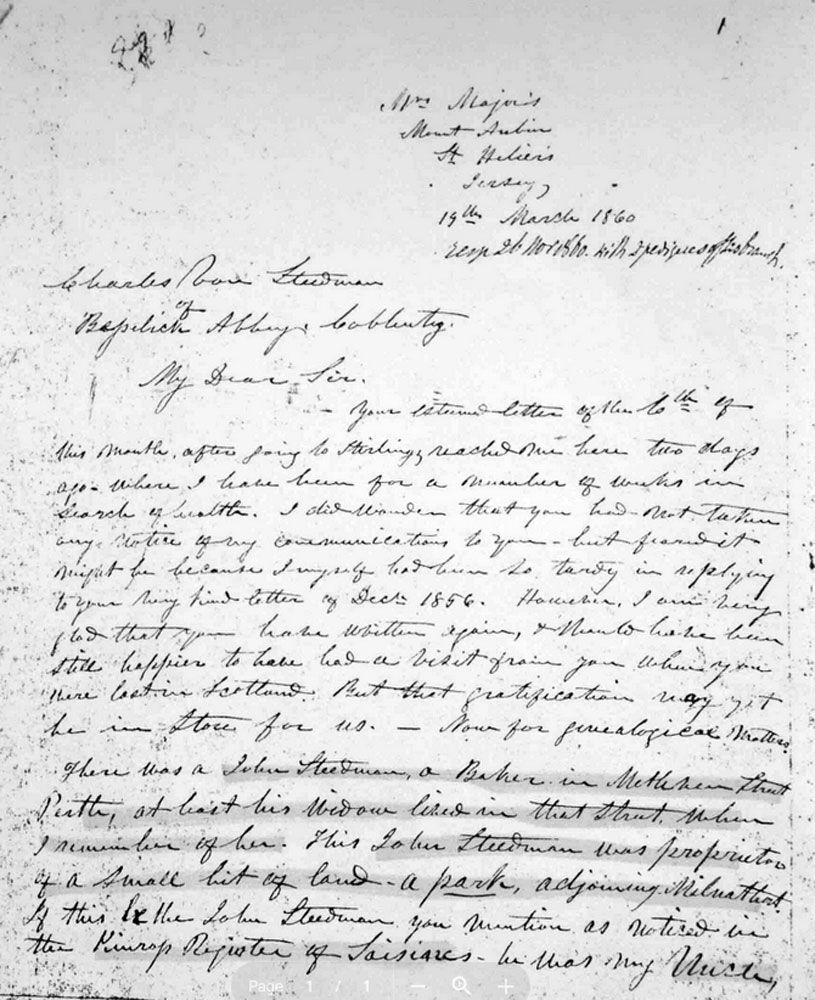 1
Mrs Major's
Mount Aubin
St Heliers
Jersey,
19th March 1860
resp 26 Nov 1860. with 2 pedigrees of his branch.
Charles Von Steedman
of
Abbey, Coblentz.
My Dear Sir.
- Your esteemed letter of the 6th of
this month, after going to Stirling, reached me here two days
ago - where I have been for a number of weeks in
search of health. I did wonder that you had not taken
any notice of my communications to you - but feared it
might be because I myself had been so tardy in replying
to your very kind letter of Decr 1856. However, I am very
glad that you have written again, & should have been
still happier to have had a visit from you when you
were last in Scotland. But that gratification may yet
be in store for us. — Now for genealogical matters.
There was a John Steedman, a Baker in Methven Street
Perth, at least his Widow lived in that Street, when
I remember of her. This John Steedman was proprietor
of a small bit of land - a park, adjoining Milnathort.
If this be the John Steedman you mention as noticed in
the Kinross Register of Saisines - he was my Uncle,
Page 1 / 1 — +